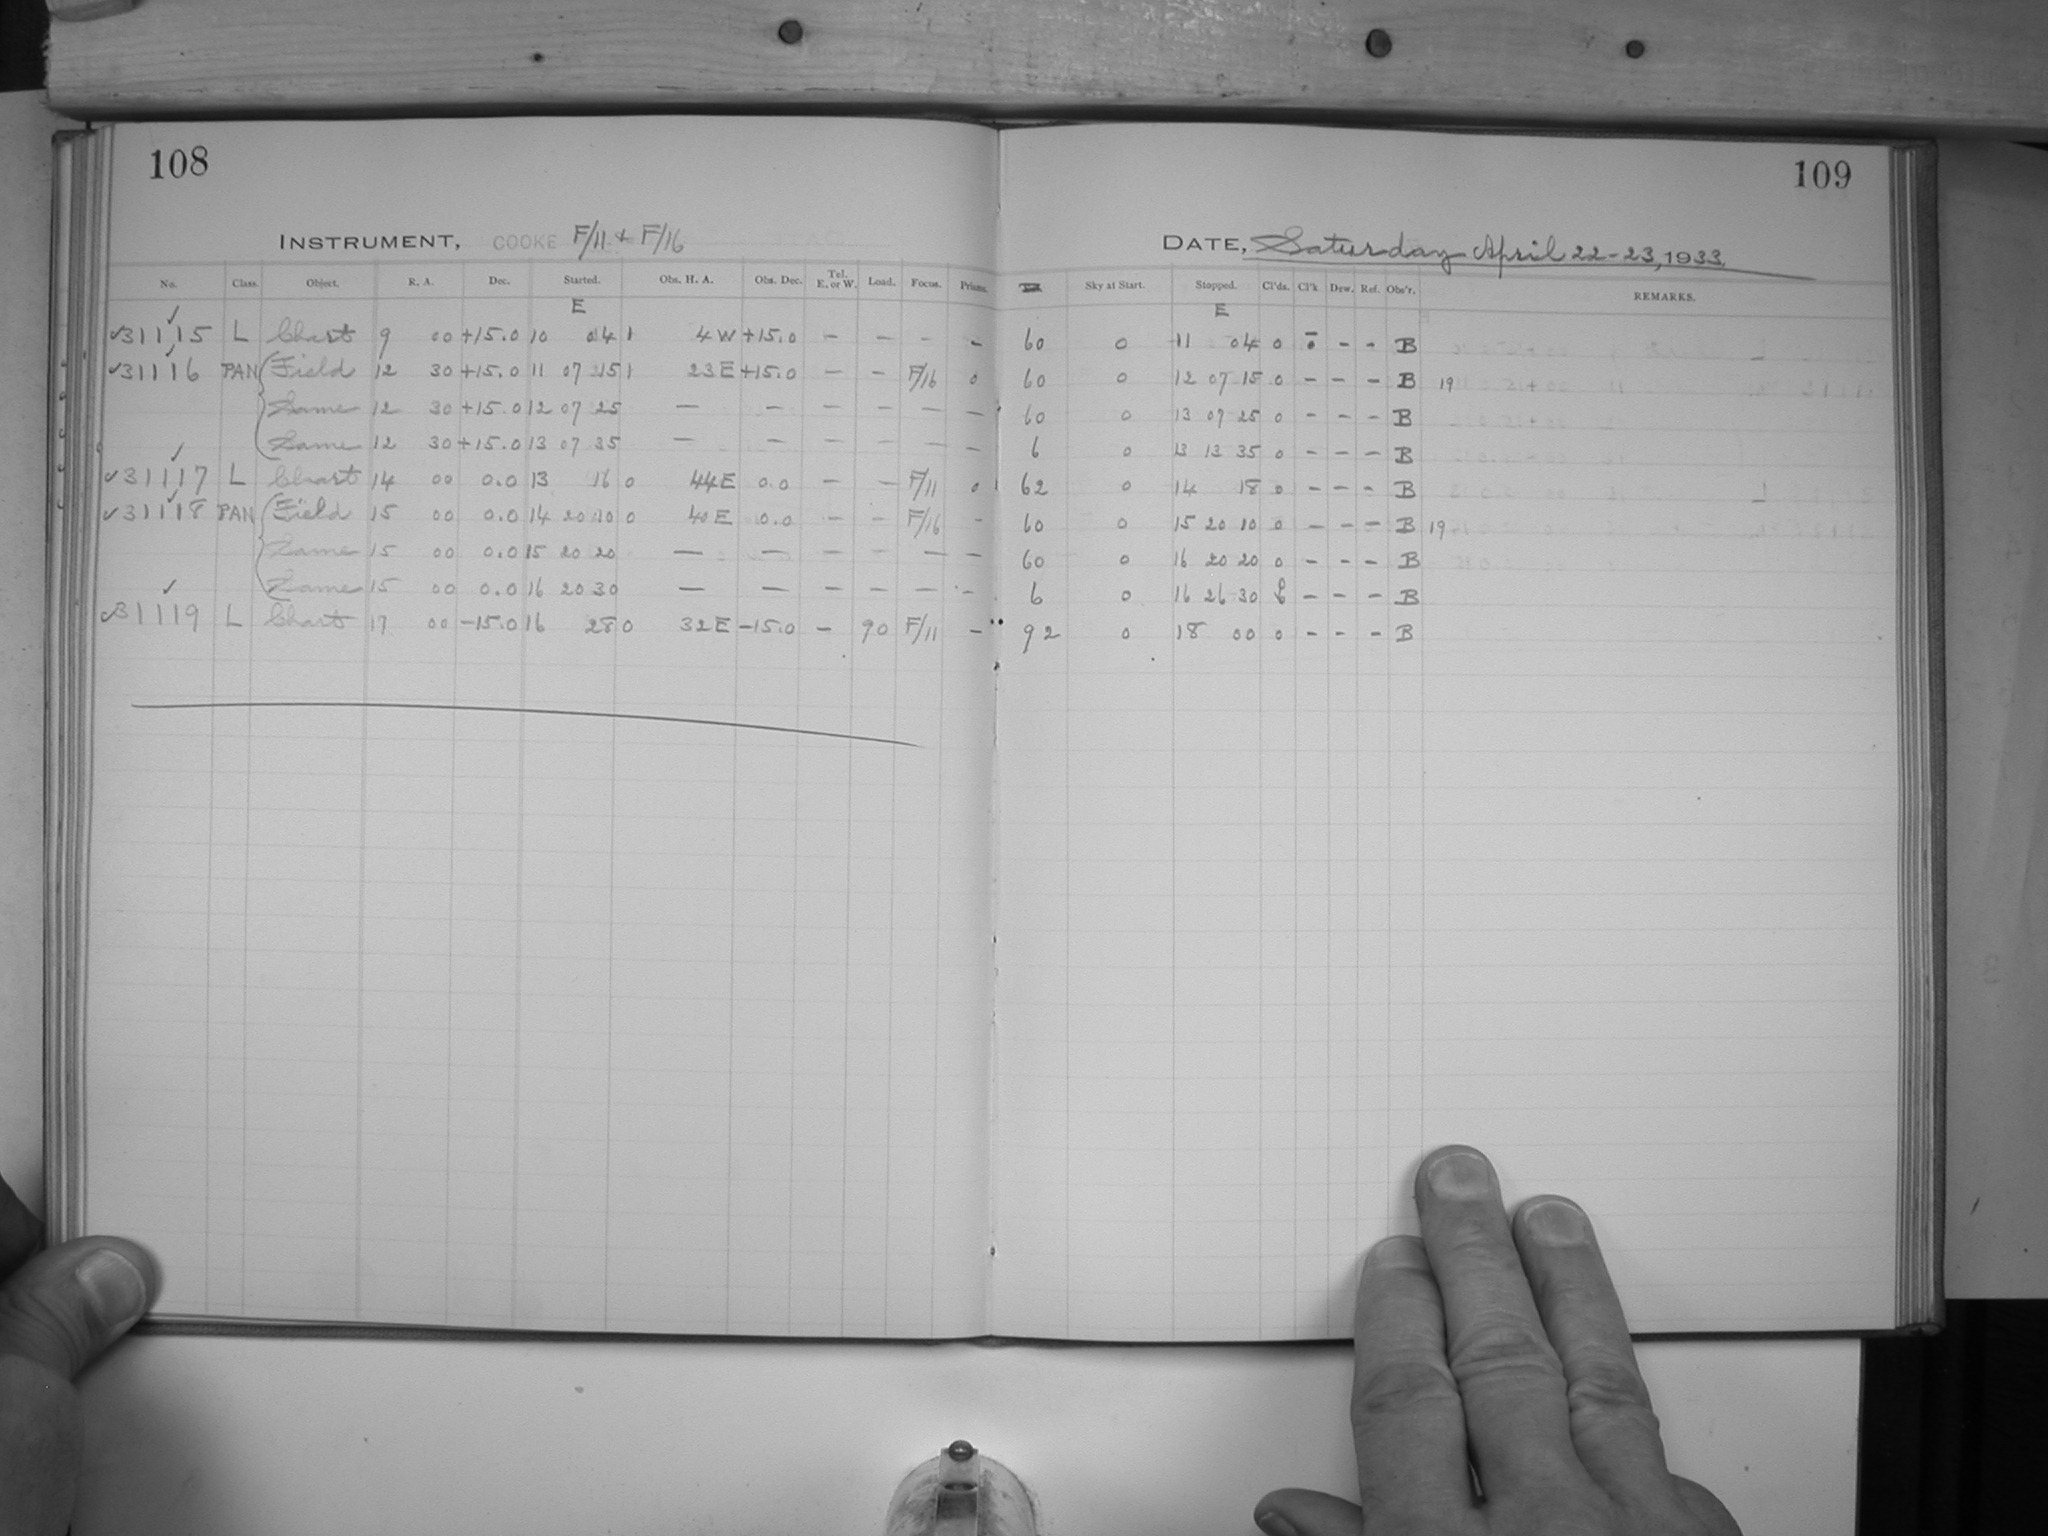 108
109
INSTRUMENT, COOKE F/11 & F/16
DATE, Saturday April 22-23, 1933.
No. Class. Object. R. A. Dec. Started. Obs. H. A. Obs. Dec. Tel. E. or W. Load. Focus. Prisms. Sky at Start. Stopped. Cl'ds. Cl'k Dew. Ref. Obs'r. REMARKS.
E E
31115 L Chart 9 00 +15.0 10 04 1 4 W +15.0 - - - - 60 0 11 04 0 - - B
31116 PAN Field 12 30 +15.0 11 07 15 1 23 E +15.0 - - F/16 0 60 0 12 07 15 0 - - - B 19
Same 12 30 +15.0 12 07 25 - - - - - - 60 0 13 07 25 0 - - - B
Same 12 30 +15.0 13 07 35 - - - - - - 6 0 13 13 35 0 - - - B
31117 L Chart 14 00 0.0 13 16 0 44 E 0.0 - - F/11 0 62 0 14 18 0 - - - B
31118 PAN Field 15 00 0.0 14 20 10 0 40 E 0.0 - - F/16 - 60 0 15 20 10 0 - - - B 19
Same 15 00 0.0 15 20 20 - - - - - - 60 0 16 20 20 0 - - - B
Same 15 00 0.0 16 20 30 - - - - - - 6 0 16 26 30 - - - B
31119 L Chart 17 00 -15.0 16 28 0 32 E -15.0 - 90 F/11 - 92 0 18 00 0 - - - B